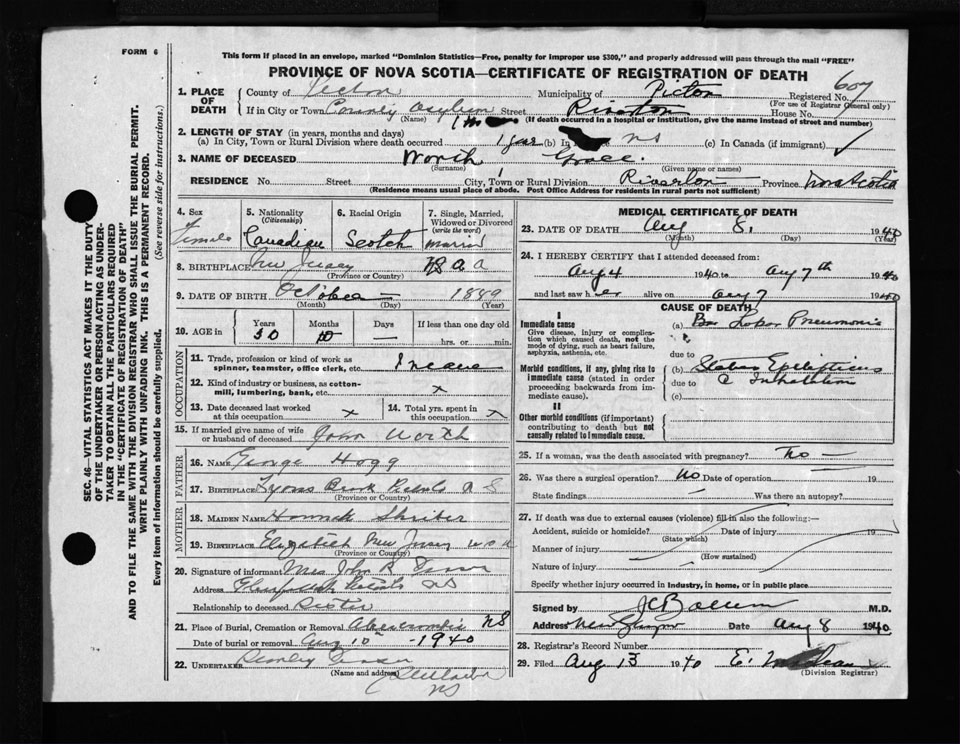 FORM 6
This form if placed in an envelope, marked "Dominion Statistics—Free, penalty for improper use $300," and properly addressed will pass through the mail "FREE"
PROVINCE OF NOVA SCOTIA—CERTIFICATE OF REGISTRATION OF DEATH
SEC. 46—VITAL STATISTICS ACT MAKES IT THE DUTY
OF THE UNDERTAKER OR PERSON ACTING AS UNDER-
TAKER TO OBTAIN ALL THE PARTICULARS REQUIRED
IN THE "CERTIFICATE OF REGISTRATION OF DEATH"
AND TO FILE THE SAME WITH THE DIVISION REGISTRAR WHO SHALL ISSUE THE BURIAL PERMIT.
WRITE PLAINLY WITH UNFADING INK. THIS IS A PERMANENT RECORD.
Every item of information should be carefully supplied. (See reverse side for instructions.)
1. PLACE OF DEATH County of Municipality of Pictou Registered No. 607
(For use of Registrar General only)
If in City or Town County Asylum Street House No.
(Name) (If death occurred in a hospital or institution, give the name instead of street and number)
2. LENGTH OF STAY (in years, months and days)
(a) In City, Town or Rural Division where death occurred 1 year (b) In NS (c) In Canada (if immigrant)
3. NAME OF DECEASED Worth Grace
(Surname) (Given name or names)
RESIDENCE No. Street City, Town or Rural Division Riverton Province Nova Scotia
(Residence means usual place of abode. Post Office Address for residents in rural parts not sufficient)
4. Sex Female
5. Nationality (Citizenship) Canadian
6. Racial Origin Scotch
7. Single, Married, Widowed or Divorced (write the word) Married
8. BIRTHPLACE New Jersey
(Province or Country)
9. DATE OF BIRTH October — 1889
(Month) (Day) (Year)
10. AGE in Years 50 Months 10 Days — If less than one day old
hrs. or min.
OCCUPATION
11. Trade, profession or kind of work as
spinner, teamster, office clerk, etc.
12. Kind of industry or business, as cotton-
mill, lumbering, bank, etc. x
13. Date deceased last worked at this occupation x
14. Total yrs. spent in this occupation x
15. If married give name of wife
or husband of deceased John Worth
FATHER
16. NAME George Hogg
17. BIRTHPLACE Lyons Brook Pictou N S
(Province or Country)
MOTHER
18. MAIDEN NAME Hannah
19. BIRTHPLACE Elizabeth New Jersey U S A
(Province or Country)
20. Signature of informant Mrs John R
Address NS
Relationship to deceased Sister
21. Place of Burial, Cremation or Removal Abercrombie NS
Date of burial or removal Aug 10th - 1940
22. UNDERTAKER Stanley Fraser
(Name and address)
NS
MEDICAL CERTIFICATE OF DEATH
23. DATE OF DEATH Aug 8. 1940
(Month) (Day) (Year)
24. I HEREBY CERTIFY that I attended deceased from:
Aug 4 1940 to Aug 7th 1940
and last saw her alive on Aug 7 1940
CAUSE OF DEATH
I
Immediate cause
Give disease, injury or complica-
tion which caused death, not the
mode of dying, such as heart failure,
asphyxia, asthenia, etc.
(a) Pneumonia
due to
Morbid conditions, if any, giving rise to
immediate cause (stated in order
proceeding backwards from im-
mediate cause).
(b) Status Epilepticus
due to
(c)
II
Other morbid conditions (if important)
contributing to death but not
causally related to immediate cause.
25. If a woman, was the death associated with pregnancy? no —
26. Was there a surgical operation? No Date of operation 19
State findings Was there an autopsy?
27. If death was due to external causes (violence) fill in also the following:—
Accident, suicide or homicide? Date of injury 19
(State which)
Manner of injury
(How sustained)
Nature of injury
Specify whether injury occurred in industry, in home, or in public place
Signed by M.D.
Address New Glasgow Date Aug 8 1940
28. Registrar's Record Number
29. Filed Aug 13 1940
(Division Registrar)